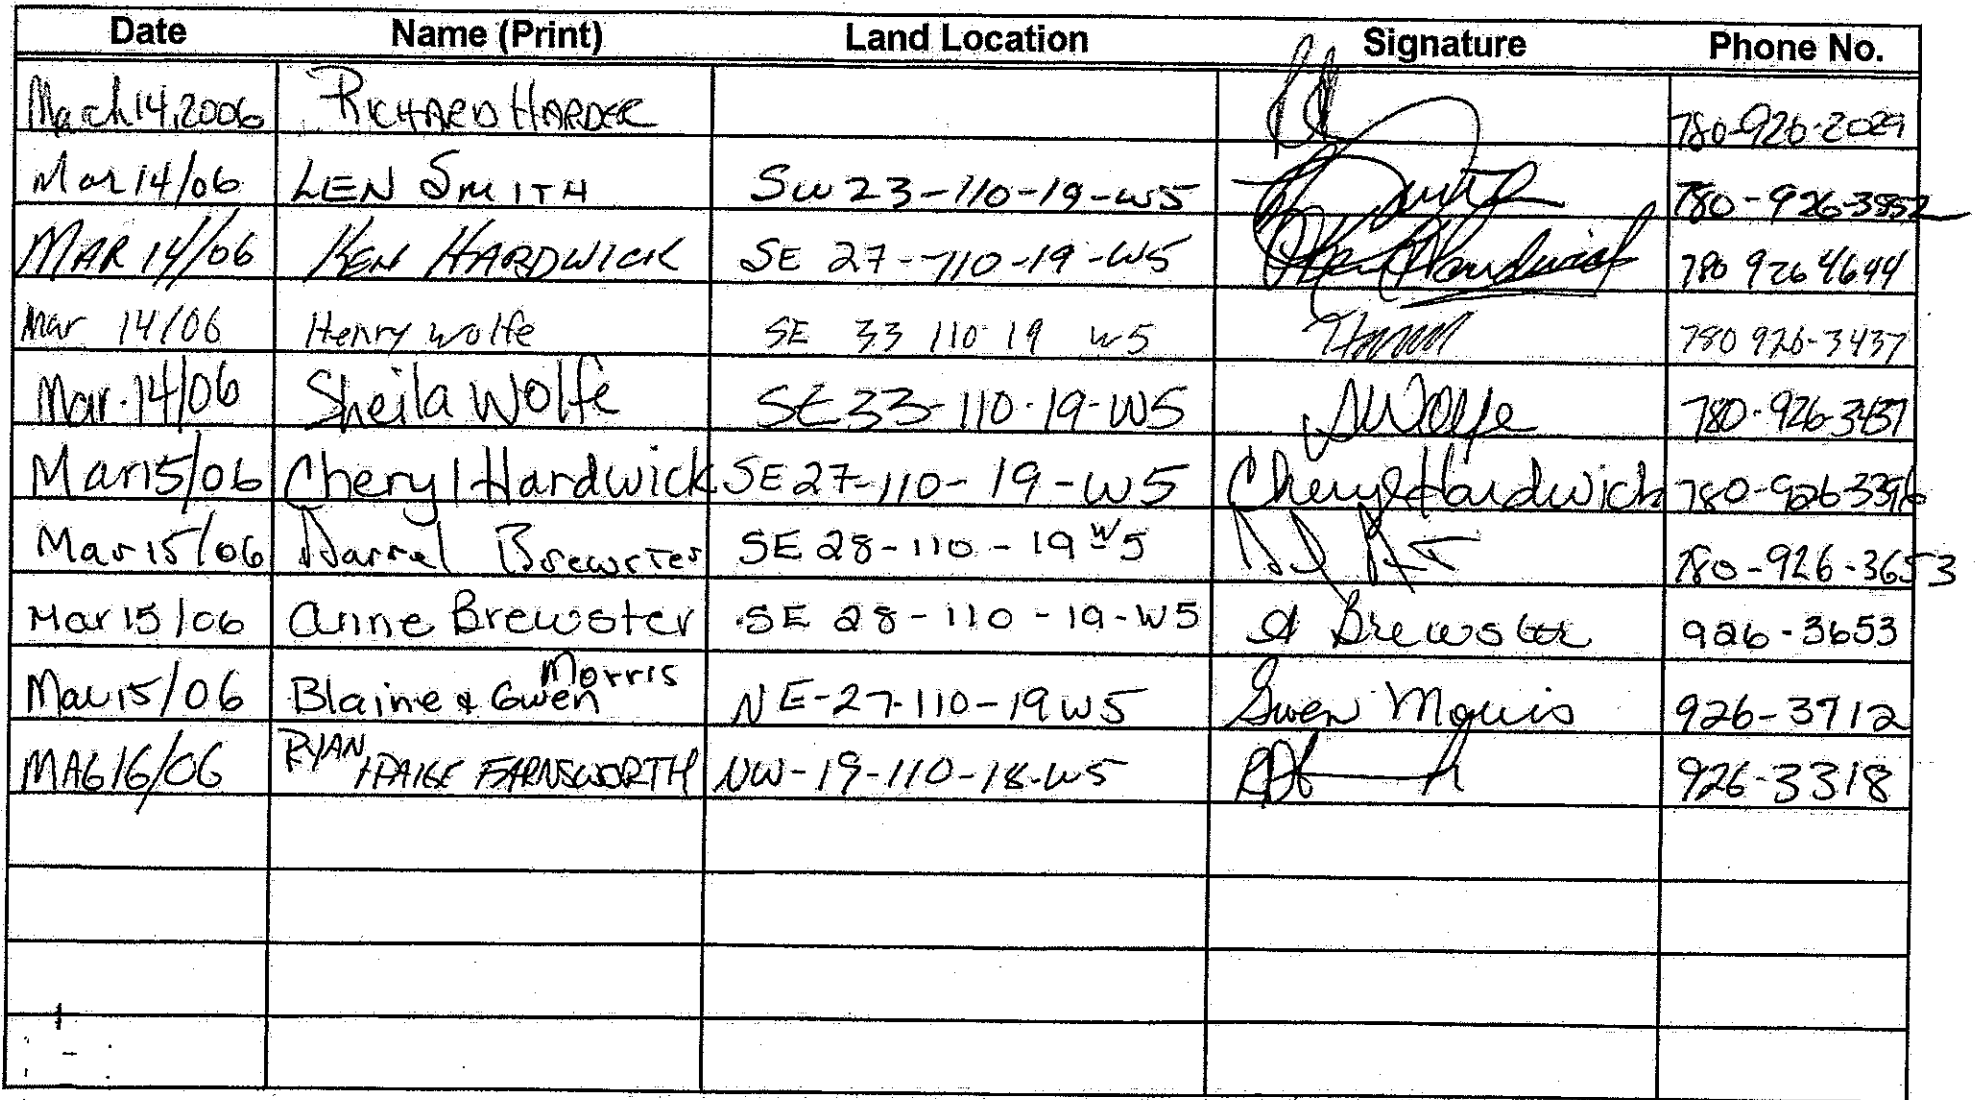 Date Name (Print) Land Location Signature Phone No.
March 14, 2006 RICHARD HARDER 780-926-2029
Mar 14/06 LEN SMITH SW 23-110-19-W5 Smith 780-926-3852
MAR 14/06 KEN HARDWICK SE 27-110-19-W5 Ken Hardwick 780 926 4644
Mar 14/06 Henry Wolfe SE 33 110 19 W5 780 926-3437
Mar. 14/06 Sheila Wolfe SE 33-110-19-W5 S Wolfe 780-926-3437
Mar 15/06 Cheryl Hardwick SE 27-110-19-W5 Cheryl Hardwick 780-926 3396
Mar 15/06 Darrel Brewster SE 28-110-19 W5 780-926-3653
Mar 15/06 Anne Brewster SE 28-110-19-W5 A Brewster 926-3653
Mar 15/06 Blaine & Gwen Morris NE-27-110-19 W5 Gwen Morris 926-3712
MAR 16/06 RYAN + PAIGE FARNSWORTH NW-19-110-18-W5 926-3318